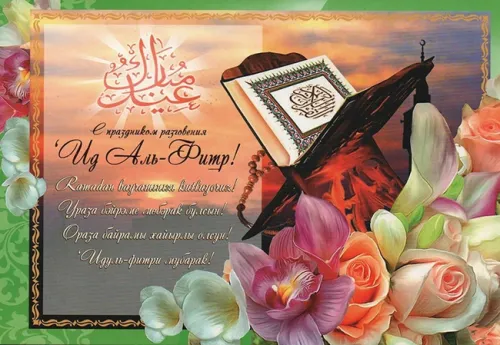 عيد مبارك
С праздником разговения
'Ид Аль-Фитр!
Ramadan bayramınız kutluyoruz!
Ураза бәйрәме мөбарак булсын!
Ораза байрамы хайырлы олсун!
'Идуль-фитри мубарак!
القرآن الكريم